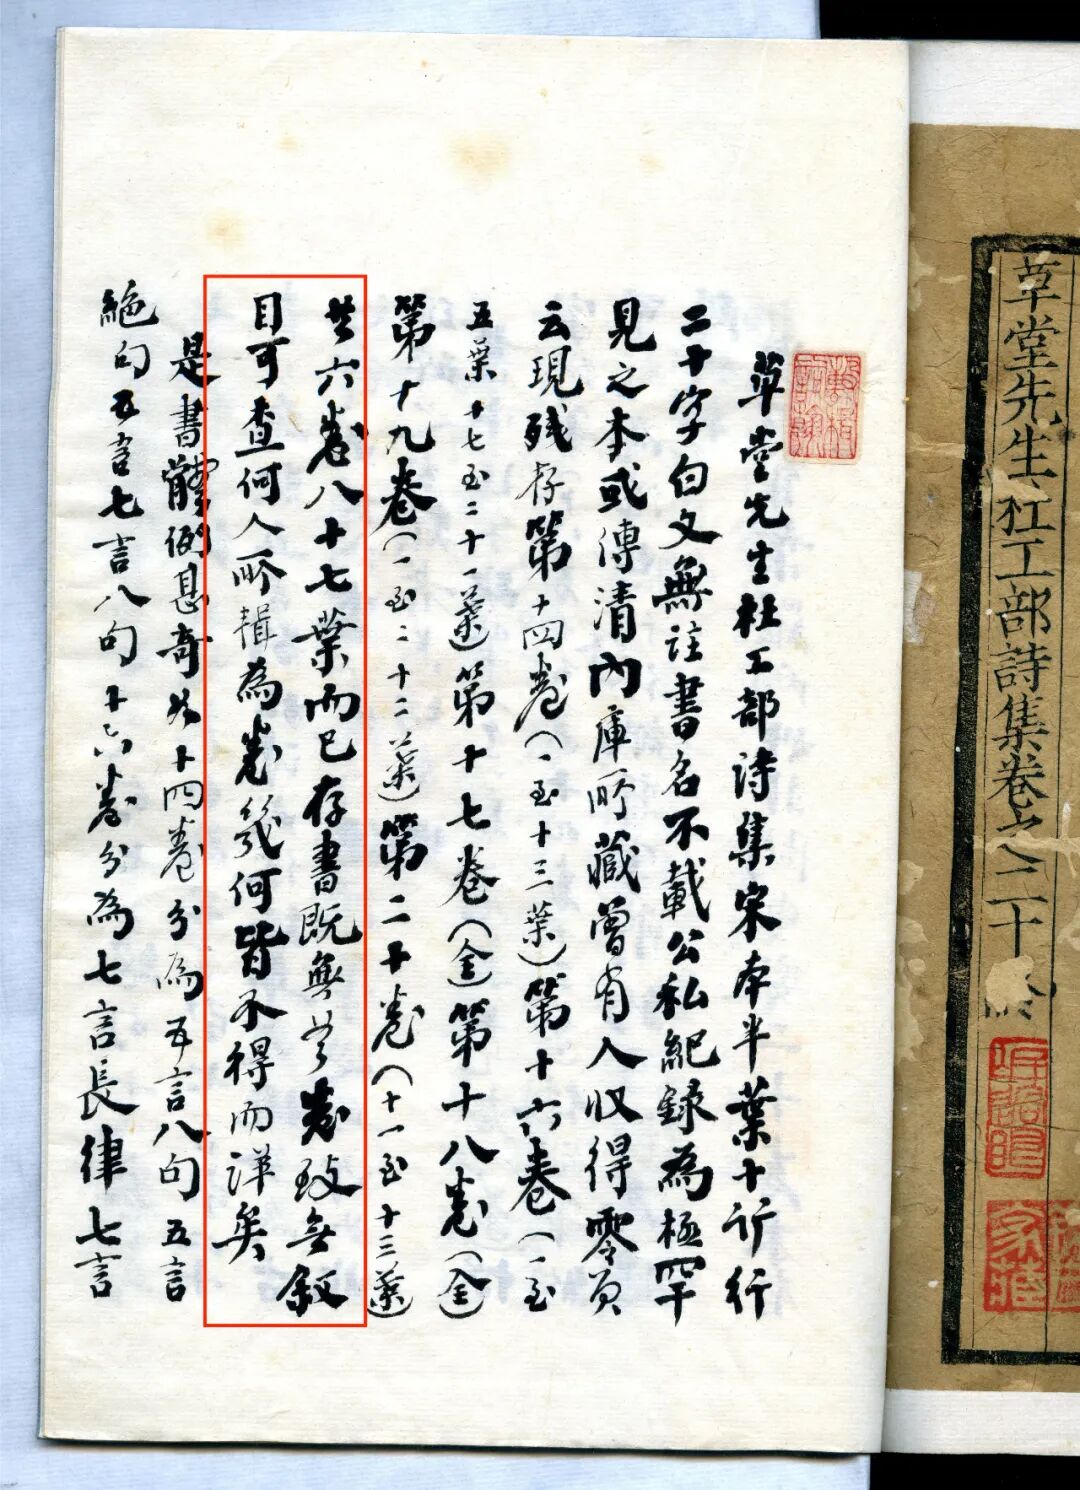 草堂先生杜工部詩集宋本半葉十行行
二十字白文無註書名不載公私紀錄為極罕
見之本或傳清內庫所藏曾有人收得零頁
云現残存第十四卷(一至十三葉)第十六卷(一至
五葉十七至二十一葉)第十七卷(全)第十八卷(全)
第十九卷(一至二十二葉)第二十卷(十一至十三葉)
共六卷八十七葉而已存書既無首卷致無叙
目可查何人所輯為卷幾何皆不得而詳矣
是書體例甚奇第十四卷分為五言八句五言
絕句五言七言八句十六卷分為七言長律七言
草堂先生杜工部詩集卷之二十終